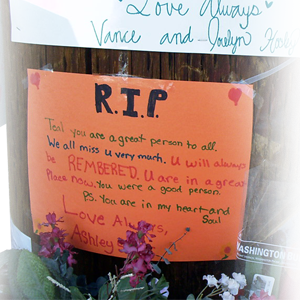 Love Always
Vance and Joelyn
R.I.P
Teal you are a great person to all.
We all miss u very much. U will always
be REMBERED. U are in a great
Place now. You were a good person.
PS. You are in my heart and
Soul
Love Always,
Ashley
WASHINGTON